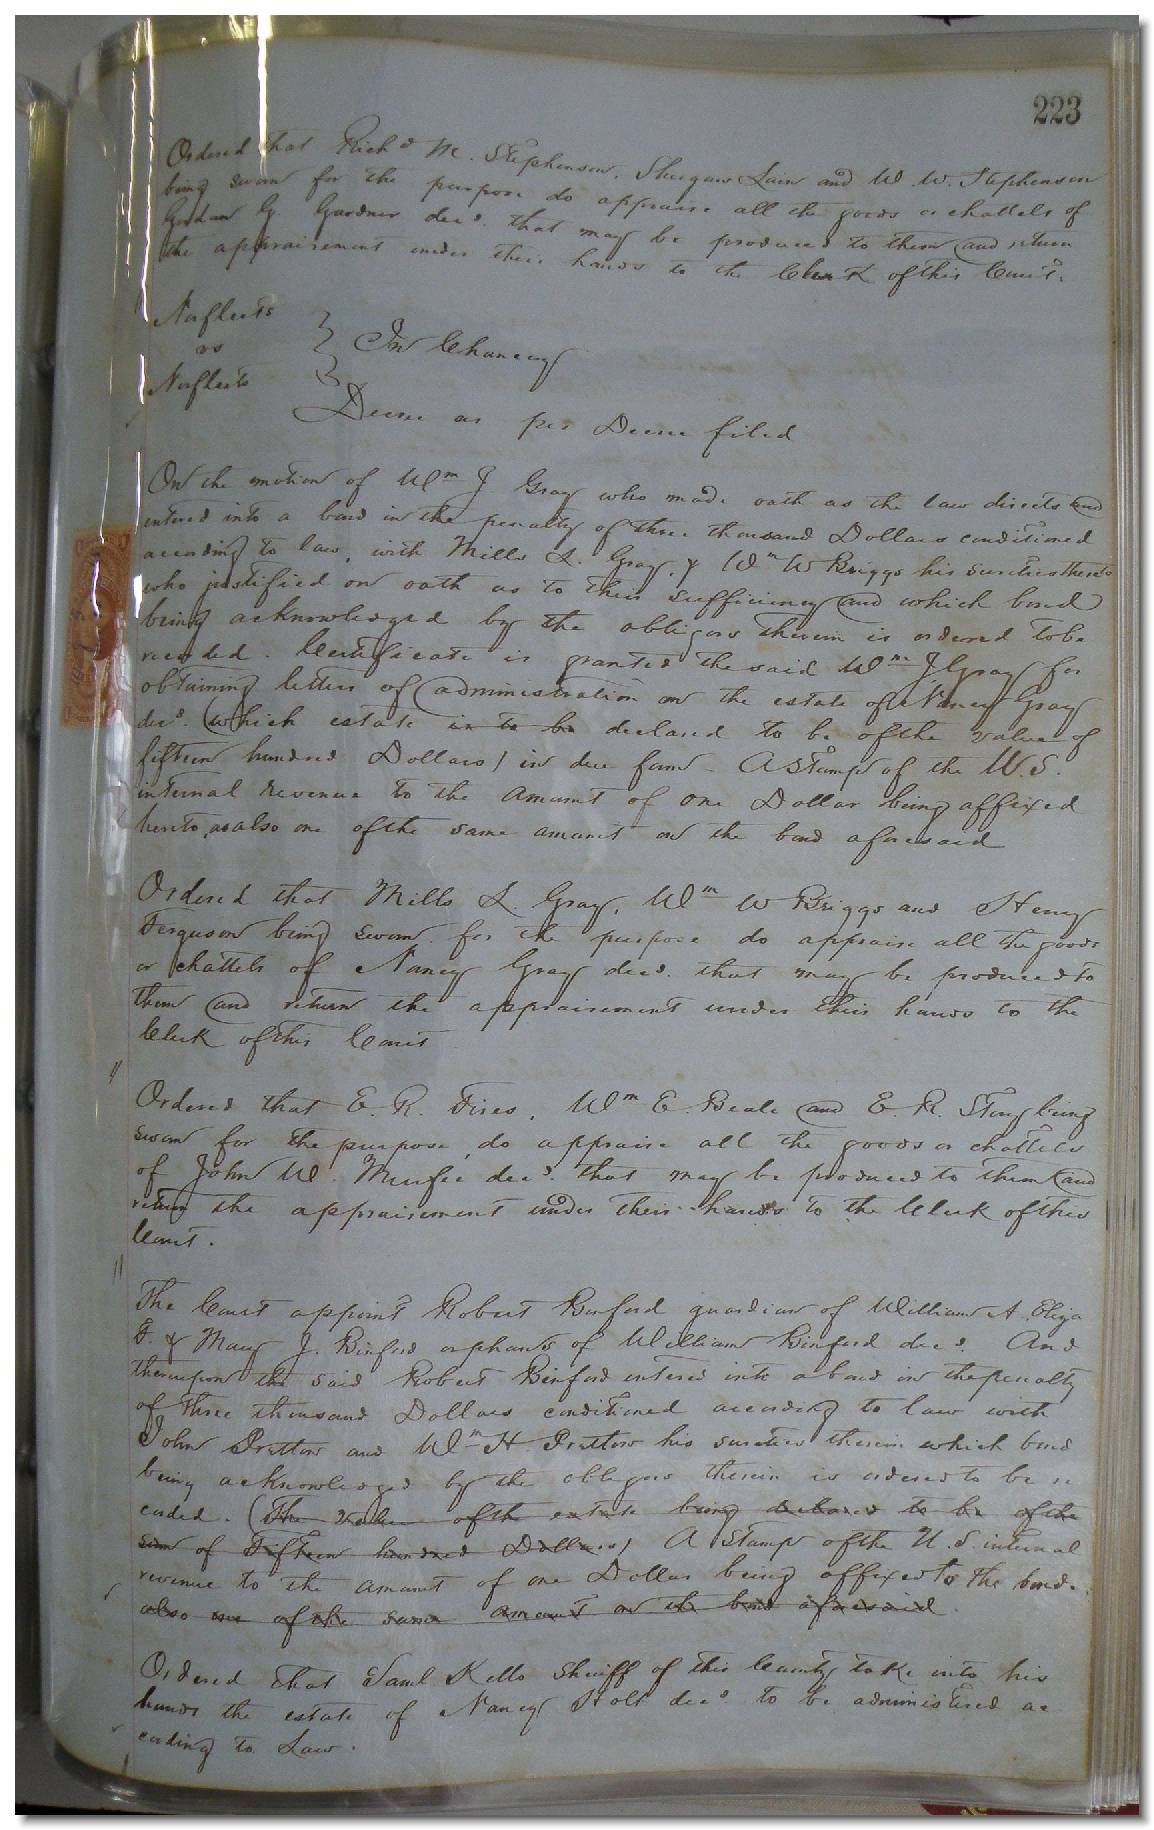 223
Ordered that Richd M. Stephenson, Lain and W. W. Stephenson
being sworn for the purpose do appraise all the goods or chattels of
G. Gardner decd. that may be produced to them and return
the appraisement under their hands to the Clerk of this Court.
Norfleets
vs
Norfleets
} In Chancery
Decree as per Decree filed
On the motion of Wm J Gray who made oath as the law directs and
entered into a bond in the penalty of three thousand Dollars conditioned
according to law, with Mills L. Gray, & Wm W Briggs his sureties thereto
who justified on oath as to their sufficiency and which bond
being acknowledged by the obligors therein is ordered to be
recorded. Certificate is granted the said Wm J Gray for
obtaining letters of administration on the estate of Nancy Gray
decd. (which estate is to be declared to be of the value of
fifteen hundred Dollars) in due form - A Stamp of the U.S.
internal revenue to the amount of one Dollar being affixed
hereto, as also one of the same amount on the bond aforesaid
Ordered that Mills L. Gray, Wm W Briggs and Henry
Ferguson being sworn for the purpose do appraise all the goods
or chattels of Nancy Gray decd. that may be produced to
them and return the appraisement under their hands to the
Clerk of this Court
Ordered that E. R. Fires, Wm E Beale and E. R. Story being
sworn for the purpose, do appraise all the goods or chattels
of John W. Murfee decd. that may be produced to them and
return the appraisement under their hands to the Clerk of this
Court.
The Court appoint Robert Binford guardian of William A. Eliza
F. & Mary J. Binford orphans of William Binford decd. And
thereupon the said Robert Binford entered into a bond in the penalty
of three thousand Dollars conditioned according to law with
John Pretlow and Wm H Pretlow his sureties therein which bond
being acknowledged by the obligors therein is ordered to be re
corded. (The value of the estate being declared to be of the
sum of Fifteen hundred Dollars) A Stamp of the U.S. internal
revenue to the amount of one Dollar being affixed to the bond.
also one of the same amount on the bond aforesaid.
Ordered that Saml Kello Sheriff of this County take into his
hands the estate of Nancy Holt decd to be administered ac
cording to Law.